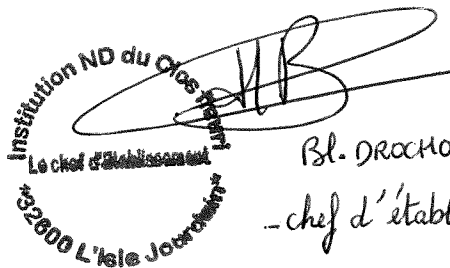 Institution ND du Clos Fleuri
Le chef d'établissement
*32600 L'Isle Jourdain*
HB
Bl. DROCHO
- chef d'établ